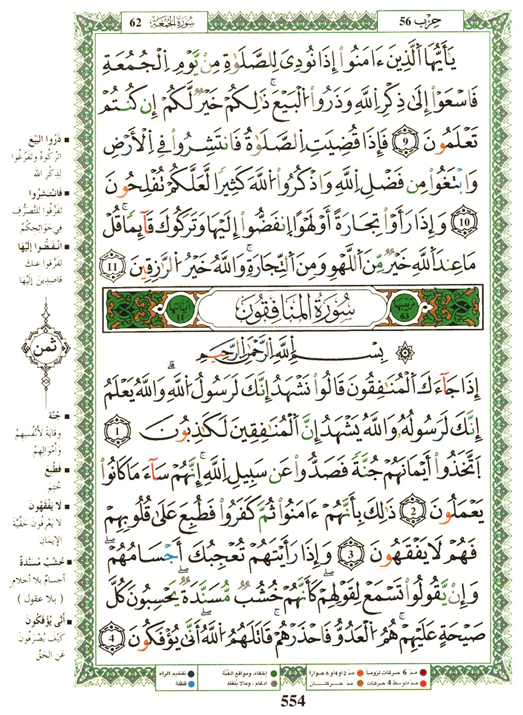 حِزْب 56
سُورَةُ الجُمُعَة 62
يَٰٓأَيُّهَا ٱلَّذِينَ ءَامَنُوٓا۟ إِذَا نُودِىَ لِلصَّلَوٰةِ مِن يَوْمِ ٱلْجُمُعَةِ
فَٱسْعَوْا۟ إِلَىٰ ذِكْرِ ٱللَّهِ وَذَرُوا۟ ٱلْبَيْعَ ۚ ذَٰلِكُمْ خَيْرٌ لَّكُمْ إِن كُنتُمْ
تَعْلَمُونَ 9 فَإِذَا قُضِيَتِ ٱلصَّلَوٰةُ فَٱنتَشِرُوا۟ فِى ٱلْأَرْضِ
وَٱبْتَغُوا۟ مِن فَضْلِ ٱللَّهِ وَٱذْكُرُوا۟ ٱللَّهَ كَثِيرًا لَّعَلَّكُمْ تُفْلِحُونَ
10 وَإِذَا رَأَوْا۟ تِجَٰرَةً أَوْ لَهْوًا ٱنفَضُّوٓا۟ إِلَيْهَا وَتَرَكُوكَ قَآئِمًا ۚ قُلْ
مَا عِندَ ٱللَّهِ خَيْرٌ مِّنَ ٱللَّهْوِ وَمِنَ ٱلتِّجَٰرَةِ ۚ وَٱللَّهُ خَيْرُ ٱلرَّٰزِقِينَ 11
سُورَةُ المُنَافِقُون
بِسْمِ ٱللَّهِ ٱلرَّحْمَٰنِ ٱلرَّحِيمِ
إِذَا جَآءَكَ ٱلْمُنَٰفِقُونَ قَالُوا۟ نَشْهَدُ إِنَّكَ لَرَسُولُ ٱللَّهِ ۗ وَٱللَّهُ يَعْلَمُ
إِنَّكَ لَرَسُولُهُۥ وَٱللَّهُ يَشْهَدُ إِنَّ ٱلْمُنَٰفِقِينَ لَكَٰذِبُونَ 1
ٱتَّخَذُوٓا۟ أَيْمَٰنَهُمْ جُنَّةً فَصَدُّوا۟ عَن سَبِيلِ ٱللَّهِ ۚ إِنَّهُمْ سَآءَ مَا كَانُوا۟
يَعْمَلُونَ 2 ذَٰلِكَ بِأَنَّهُمْ ءَامَنُوا۟ ثُمَّ كَفَرُوا۟ فَطُبِعَ عَلَىٰ قُلُوبِهِمْ
فَهُمْ لَا يَفْقَهُونَ 3 وَإِذَا رَأَيْتَهُمْ تُعْجِبُكَ أَجْسَامُهُمْ ۖ
وَإِن يَقُولُوا۟ تَسْمَعْ لِقَوْلِهِمْ ۖ كَأَنَّهُمْ خُشُبٌ مُّسَنَّدَةٌ ۖ يَحْسَبُونَ كُلَّ
صَيْحَةٍ عَلَيْهِمْ ۚ هُمُ ٱلْعَدُوُّ فَٱحْذَرْهُمْ ۚ قَٰتَلَهُمُ ٱللَّهُ ۖ أَنَّىٰ يُؤْفَكُونَ 4
ذَرُوا البَيْع
اتركوه وتفرغوا
لذكر الله
فانتشروا
تفرقوا للتصرف
في حوائجكم
انفضوا إليها
تفرقوا عنك
قاصدين إليها
ثمن
جُنَّة
وقاية لأنفسهم
وأموالهم
فطبع
ختم
لا يفقهون
لا يعرفون حقيقة
الإيمان
خشب مسندة
أجسام بلا أحلام
( بلا عقول )
أنى يؤفكون
كيف يصرفون
عن الحق
مدّ 6 حركات لزوماً مدّ 2 أو 4 أو 6 جوازاً إخفاء، ومواقع الغُنَّة تفخيم الراء
مدّ متوسط 4 حركات مدّ حركتان إدغام، ومالا يُلفظ قلقلة
554